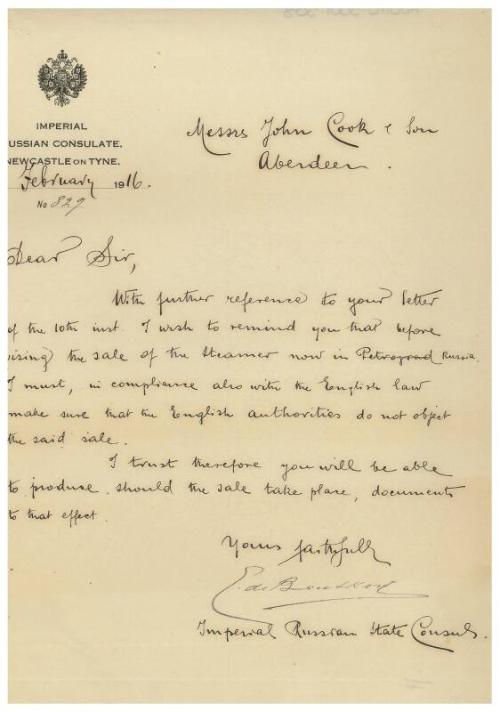 IMPERIAL
USSIAN CONSULATE,
NEWCASTLE ON TYNE.
February 1916.
No 829
Messrs John Cook & Son
Aberdeen.
Dear Sir,
With further reference to your letter
of the 10th inst. I wish to remind you that before
vising the sale of the Steamer now in Petrograd Russia.
I must, in compliance also with the English law
make sure that the English authorities do not object
the said sale.
I trust therefore you will be able
to produce, should the sale take place, documents
to that effect.
Yours faithfully
Imperial Russian State Consul.